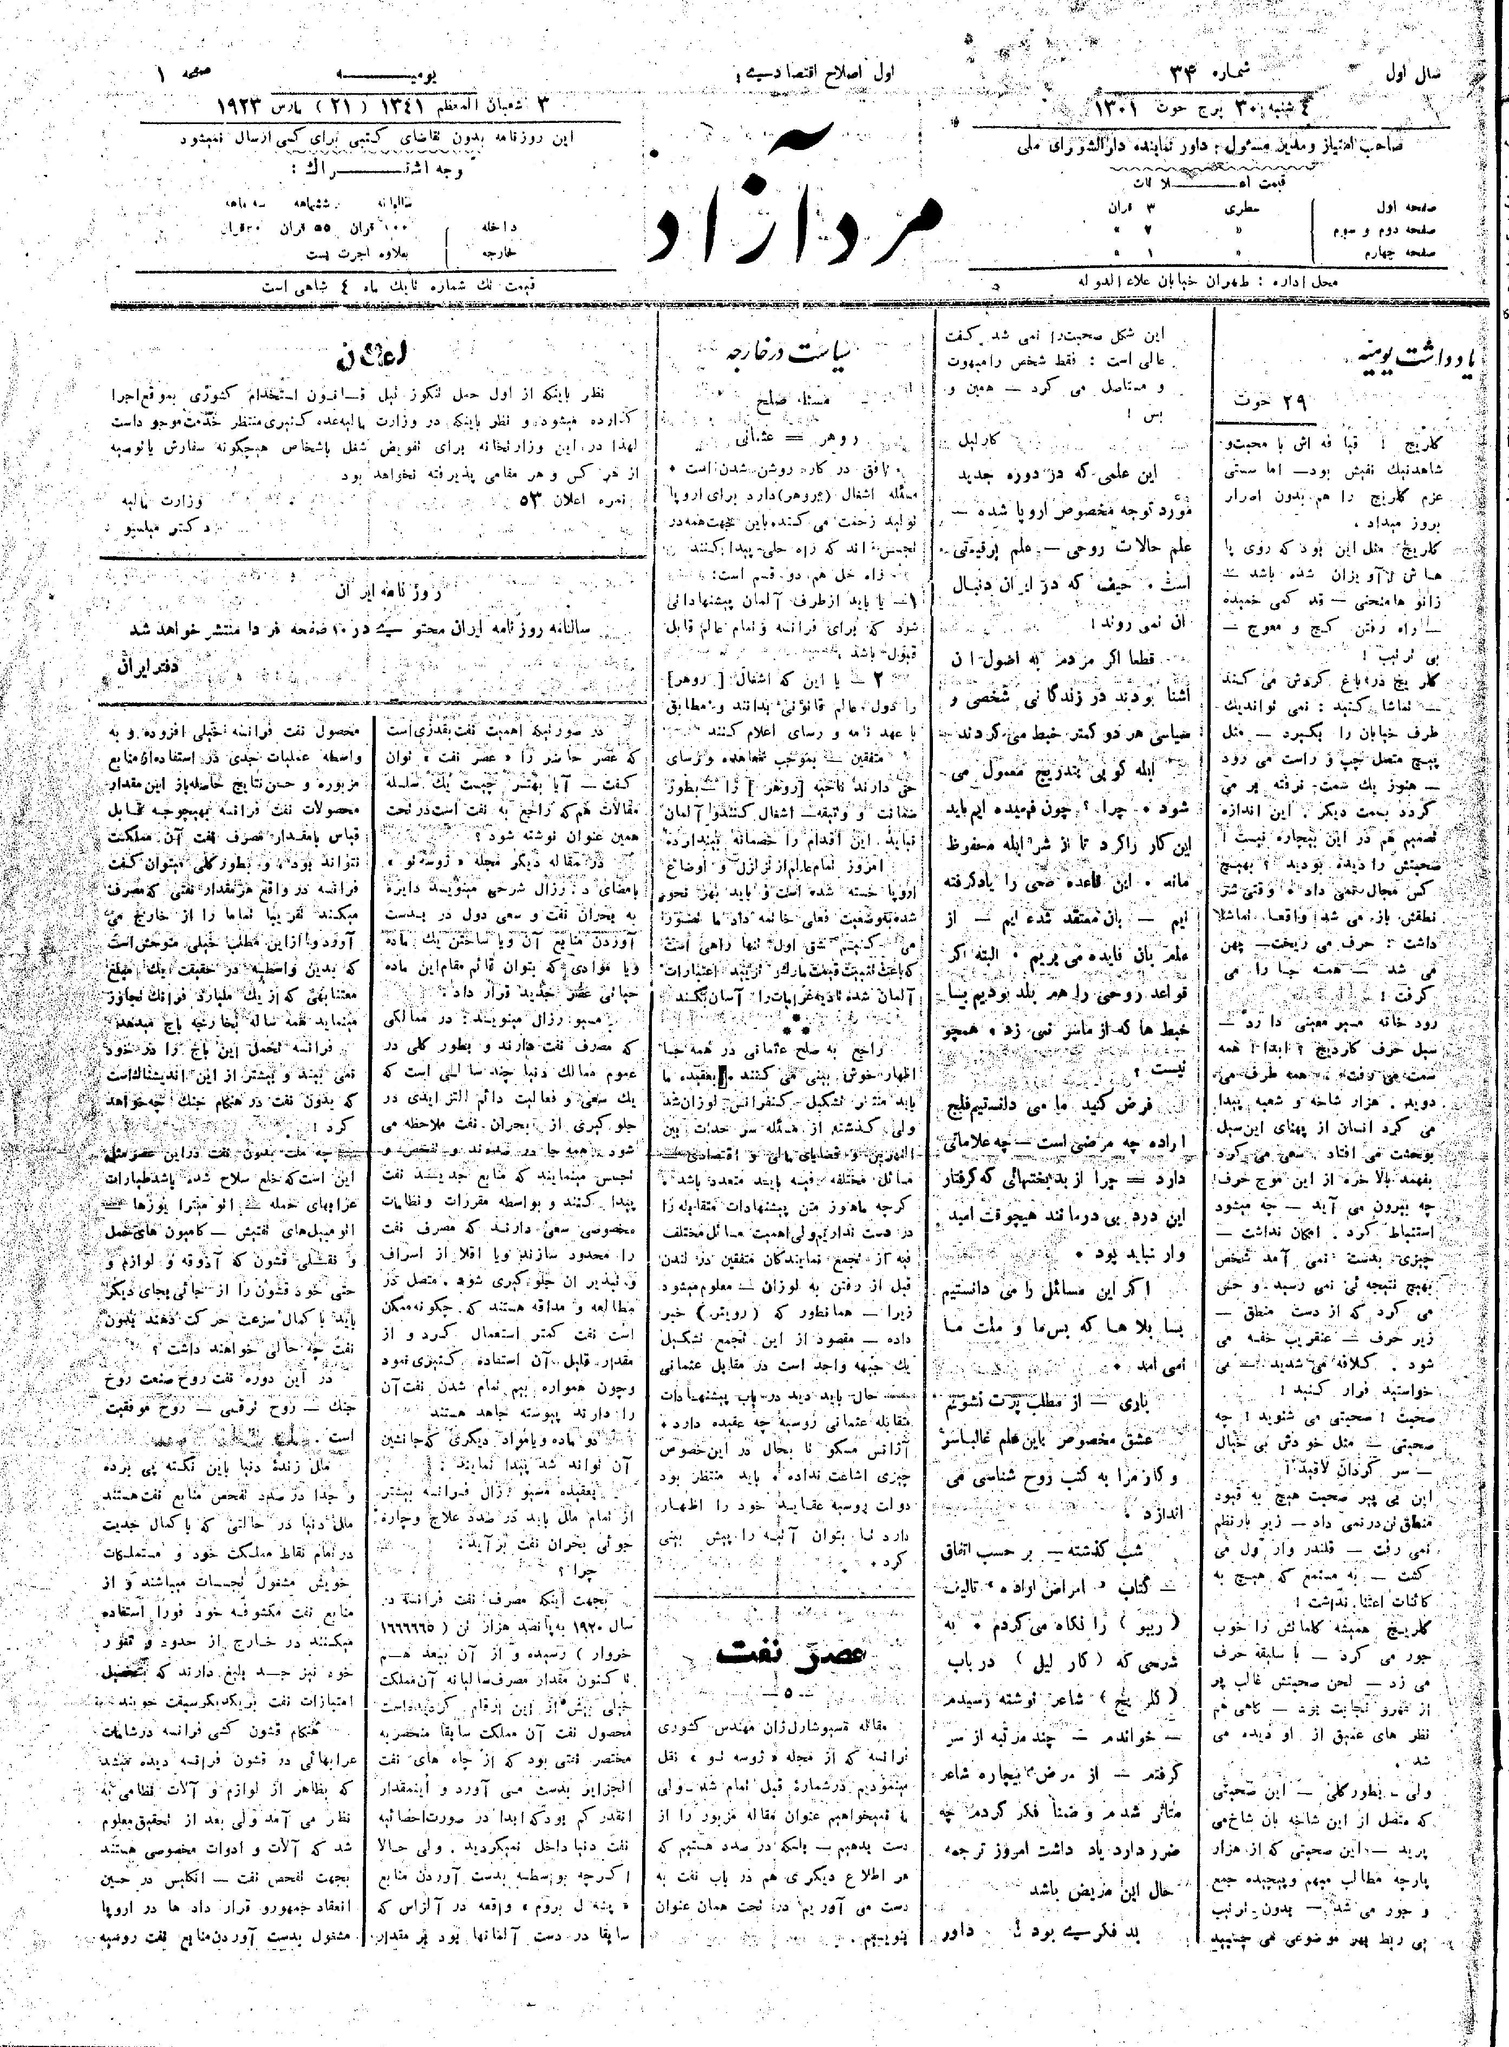 سال اول
شماره ۳۴
اول اصلاح اقتصادی
یومیه
صفحه ۱
۴ شنبه ۳۰ برج حوت ۱۳۰۱
۳ شعبان المعظم ۱۳۴۱ (۲۱) مارس ۱۹۲۳
صاحب امتیاز و مدیر مسئول : داور نماینده دارالشورای ملی
قیمت اعلانات
صفحه اول سطری ۳ قران
صفحه دوم و سوم » ۷ »
صفحه چهارم » ۱ »
محل اداره : طهران خیابان علاء الدوله
مرد آزاد
این روزنامه بدون تقاضای کتبی برای کسی ارسال نمیشود
وجه اشتراک :
سالیانه ششماهه سه ماهه
داخله ۱۰۰ قران ۵۵ قران ۳۰ قران
خارجه بعلاوه اجرت پست
قیمت تک شماره تا یک ماه ۴ شاهی است
یادداشت یومیه
۲۹ حوت
کلریج ! قیافه اش با محبت و
شاهدنیک نفیش بود — اما سستی
عزم کلریج را هم بدون اصرار
بروز میداد .
کلریج مثل این بود که روی پا
هاش لاآویزان شده باشد —
زانوها منحنی — قد کمی خمیده
— راه رفتن کج و معوج —
بی ترتیب !
کلریج در باغ گردش می کند
— تماشا کنید : نمی تواند یک
طرف خیابان را بگیرد — مثل
پیچ متصل چپ و راست می رود
— هنوز یک سمت نرفته بر می
گردد بسمت دیگر . این اندازه
تصمیم هم در این بیچاره نیست !
صحبتش را دیده بودید ؟ بهیچ
کس مجال نمی داد . وقتی شر
نطقش باز می شد واقعا تماشا
داشت : حرف می ریخت — پهن
می شد — همه جا را می
گرفت !
رودخانه مسیر معینی دارد —
سیل حرف کلریج ؟ ابدا ! همه
سمت می رفت . همه طرف می
دوید . هزار شاخه و شعبه پیدا
می کرد انسان از پهنای این سیل
بوحشت می افتاد . سعی می کرد
بفهمد بالاخره از این موج حرف
چه بیرون می آید — چه میشود
استنباط کرد . امکان نداشت —
چیزی بدست نمی آمد شخص
بهیچ نتیجه ئی نمی رسید و حس
می کرد که از دست منطق —
زیر حرف — عنقریب خفه می
شود . کلافه می شدید — می
خواستید فرار کنید !
صحبت ! صحبتی می شنوید ! چه
صحبتی — مثل خودش بی خیال
— سر گردان لاقید !
این بی پیر صحبت هیچ به قیود
منطق تن در نمی داد — زیر بار نظم
نمی رفت — قلندر وار ول می
گشت — به مستمع که هیچ به
کائنات اعتنا نداشت !
کلریج همیشه کلماتش را خوب
جور می کرد — با سلیقه حرف
می زد — لحن صحبتش غالب پر
از مهر و نجابت بود — گاهی هم
نظر های عمیق از او دیده می
شد .
ولی — بطور کلی — این صحبتی
که متصل از این شاخه بان شاخ می
پرید — این صحبتی که از هزار
پارچه مطالب مبهم و پیچیده جمع
و جور می شد — بدون ترتیب
بی ربط بهر موضوعی می چسبید
این شکل صحبت را نمی شد گفت
عالی است : فقط شخص را مبهوت
و مستاصل می کرد — همین و
بس !
کارلیل
این علمی که در دوره جدید
مورد توجه مخصوص اروپا شده —
علم حالات روحی — علم پر قیمتی
است . حیف که در ایران دنبال
ان نمی روند !
قطعا اگر مردم به اصول ان
اشنا بودند در زندگانی شخصی و
سیاسی هر دو کمتر خبط می کردند
ابله کوبی بتدریج معمول می
شود . چرا ؟ چون فهمیده ایم باید
این کار را کرد تا از شر ابله محفوظ
ماند . این قاعده صحی را یاد گرفته
ایم — بان معتقد شده ایم — از
علم بان فایده می بریم . البته اگر
قواعد روحی را هم بلد بودیم بسا
خبط ها که از ما سر نمی زد . همچو
نیست ؟
فرض کنید ما می دانستیم فلج
اراده چه مرضی است — چه علاماتی
دارد — چرا از بدبختهائی که گرفتار
این درد بی درمانند هیچوقت امید
وار نباید بود .
اگر این مسائل را می دانستیم
بسا بلاها که بس ما و ملت ما
نمی امد .
باری — از مطلب پرت نشویم
عشق مخصوص باین علم غالبا سر
و کار مرا به کتب روح شناسی می
اندازد .
شب گذشته — بر حسب اتفاق
— کتاب « امراض اراده » تالیف
( ریبو ) را نگاه می کردم . به
شرحی که ( کارلیل ) در باب
( کلریج ) شاعر نوشته رسیدم
— خواندم — چند مرتبه از سر
گرفتم — از مرض بیچاره شاعر
متاثر شدم و ضمنا فکر کردم چه
ضرر دارد یاد داشت امروز ترجمه
حال این مریض باشد
بد فکری بود ؟ داور
سیاست در خارجه
مسئله صلح
روهر — عثمانی
افق در کار روشن شدن است .
مسئله اشغال (روهر) دارد برای اروپا
تولید زحمت می کند باین جهت همه در
تجسس اند که راه حلی پیدا کنند
راه حل هم دو قسم است :
۱ — یا باید از طرف آلمان پیشنهاداتی
شود که برای فرانسه و تمام عالم قابل
قبول باشد
۲ — یا این که اشغال [روهر]
را دول عالم قانونی بدانند و مطابق
با عهد نامه ورسای اعلام کنند
متفقین — بموجب معاهده ورسای
حق دارند ناحیه [روهر] را — بطور
ضمانت و وثیقه — اشغال کنند و آلمان
نباید این اقدام را خصمانه بپندارد
امروز تمام عالم از تزلزل و اوضاع
اروپا خسته شده است و باید بهر نحو
شده بوضعیت فعلی خاتمه داد ما تصور
می کنیم شق اول تنها راهی است
که باعث تثبیت قیمت مارک — تزیید اعتبارات
آلمان شده تادیه غرامات را آسان بکند
راجع به صلح عثمانی در همه جا
اظهار خوش بینی می کنند . بعقیده ما
باید منتظر تشکیل کنفرانس لوزان شد
ولی گذشته از مسئله سر حدات بین
النهرین و قضایای مالی و اقتصادی —
مسائل مختلفه بقیه بایند متعدد باشد
گرچه ما هنوز متن پیشنهادات متقابله را
در دست نداریم ولی اهمیت مسائل مختلف
فیه از تجمع نمایندگان متفقین در لندن
قبل از رفتن به لوزان — معلوم میشود
زیرا — همانطور که (رویتر) خبر
داده — مقصود از این تجمع تشکیل
یک جبهه واحد است در مقابل عثمانی
حال باید دید در باب پیشنهادات
متقابله عثمانی روسیه چه عقیده دارد .
آژانس مسکو تا بحال در این خصوص
چیزی اشاعت نداده . باید منتظر بود
دولت روسیه عقاید خود را اظهار
دارد تا بتوان آتیه را پیش بینی
کرد .
عصر نفت
— ۵ —
مقاله مسیو شارل ژان مهندس کشوری
فرانسه که از مجله « ژوسه تو » نقل
مینمودیم در شماره قبل تمام شد — ولی
ما نمیخواهیم عنوان مقاله مزبور را از
دست بدهیم — بلکه در صدد هستیم که
هر اطلاع دیگری هم در باب نفت به
دست می آوریم در تحت همان عنوان
بنویسیم .
اعلان
نظر باینکه از اول حمل تنگوزئیل قانون استخدام کشوری بموقع اجرا
گذارده میشود و نظر باینکه در وزارت مالیه عده کثیری منتظر خدمت موجود است
لهذا در این وزارتخانه برای تفویض شغل باشخاص هیچگونه سفارش یا توصیه
از هر کس و هر مقامی پذیرفته نخواهد بود
نمره اعلان ۵۳
وزارت مالیه
دکتر میلسپو
روزنامه ایران
سالنامه روزنامه ایران محتوی در ۱۰۰ صفحه فردا منتشر خواهد شد
دفتر ایران
در صورتیکه اهمیت نفت بقدری است
که عصر حاضر را « عصر نفت » توان
گفت — آیا بهتر نیست یک سلسله
مقالات هم که راجع به نفت است در تحت
همین عنوان نوشته شود ؟
در مقاله دیگر مجله « ژوسه تو »
بامضای د . رزال شرحی مینویسد دایره
به بحران نفت و سعی دول در بدست
آوردن منابع آن و یا ساختن یک ماده
و یا موادی که بتوان قائم مقام این ماده
حیاتی عصر جدید قرار داد :
مسیو رزال مینویسد : در ممالکی
که مصرف نفت دارند و بطور کلی در
عموم ممالک دنیا چند سالی است که
یک سعی و فعالیت دائم التزایدی در
جلوگیری از بحران نفت ملاحظه می
شود . همه جا در صددند و تفحص و
تجسس مینمایند که منابع جدید نفت
پیدا کنند و بواسطه مقررات و نظامات
مخصوصی سعی دارند که مصرف نفت
را محدود سازند و یا اقلا از اسراف
و تبذیر ان جلوگیری شود . متصل در
مطالعه و مداقه هستند که چگونه ممکن
است نفت کمتر استعمال کرد و از
مقدار قلیل آن استفاده کثیری نمود
و چون همواره بیم تمام شدن نفت آن
را دارند پیوسته جاهد هستند
دو ماده و یا مواد دیگری که جانشین
آن تواند شد پیدا نمایند .
بعقیده مسیو رزال فرانسه بیشتر
از تمام ملل باید در صدد علاج و چاره
جوئی بحران نفت برآید .
چرا ؟
بجهت اینکه مصرف نفت فرانسه در
سال ۱۹۲۰ به پانصد هزار تن (۱۶۶۶۶۶۵
خروار) رسیده و از آن ببعد هم
تا کنون مقدار مصرف سالیانه آن مملکت
خیلی بیش از این ارقام گردیده است
محصول نفت آن مملکت سابقا منحصر به
مختصر نفتی بود که از چاه های نفت
الجزایر بدست می آورد و اینمقدار
انقدر کم بود که ابدا در صورت احصائیه
نفت دنیا داخل نمیگردید . ولی حالا
اگرچه بواسطه بدست آوردن منابع
« پشل بروم » واقعه در آلزاس که
سابقا در دست آلمانها بود بر مقدار
محصول نفت فرانسه خیلی افزوده و به
واسطه عملیات جدی در استفاده از منابع
مزبوره و حسن نتایج حاصله باز این مقدار
محصولات نفت فرانسه بهیچوجه قابل
قیاس با مقدار مصرف نفت آن مملکت
نتواند بود . و بطور کلی میتوان گفت
فرانسه در واقع هر مقدار نفتی که مصرف
میکند تقریبا تماما را از خارج می
آورد و از این مطلب خیلی متوحش است
که بدین واسطه در حقیقت یک مبلغ
معتنابهی که از یک ملیارد فرانک تجاوز
مینماید همه ساله بخارجه باج میدهد
فرانسه تحمل این باج را در خود
نمی بیند و بیشتر از این اندیشناک است
که بدون نفت در هنگام جنگ چه خواهد
کرد !
چه ملت بدون نفت در این عصر مثل
این است که خلع سلاح شده باشد طیارات
عرابهای حمله — اتو میترایوزها —
اتومبیل های تفتیش — کامیون های حمل
و نقلی قشون که آذوقه و لوازم و
حتی خود قشون را از جائی بجای دیگر
باید با کمال سرعت حرکت دهند بدون
نفت چه حالی خواهند داشت ؟
در این دوره نفت روح صنعت روح
جنگ — روح ترقی — روح موفقیت
است .
ملل زندۀ دنیا باین نکته پی برده
و جدا در صدد تفحص منابع نفت هستند
ملل دنیا در حالتی که با کمال جدیت
در تمام نقاط مملکت خود و مستملکات
خویش مشغول تجسسات میباشند و از
منابع نفت مکشوفه خود فورا استفاده
میکنند در خارج از حدود و ثغور
خود نیز جد بلیغ دارند که بتحصیل
امتیازات نفت بر یکدیگر سبقت جویند
هنگام قشون کشی فرانسه در شامات
عرابهائی در قشون فرانسه دیده میشد
که بظاهر از لوازم و آلات نظامی به
نظر می آمد ولی بعد از تحقیق معلوم
شد که آلات و ادوات مخصوصی هستند
بجهت تفحص نفت — انگلیس در حین
انعقاد جمهورو قرار داد ها در اروپا
مشغول بدست آوردن منابع نفت روسیه